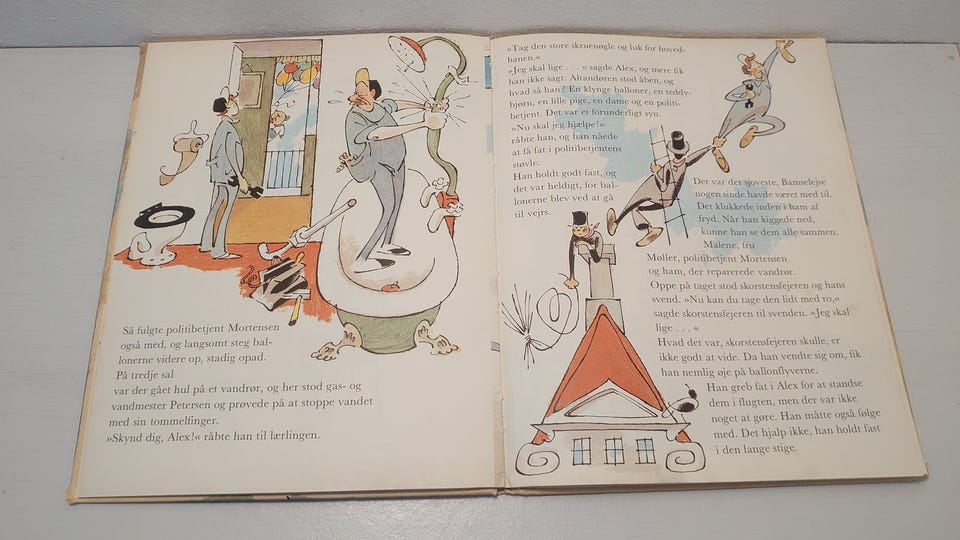 Så fulgte politibetjent Mortensen
også med, og langsomt steg bal-
lonerne videre op, stadig opad.
På tredje sal
var der gået hul på et vandrør, og her stod gas- og
vandmester Petersen og prøvede på at stoppe vandet
med sin tommelfinger.
»Skynd dig, Alex!« råbte han til lærlingen.
»Tag den store skruenøgle og luk for hoved-
hanen.«
»Jeg skal lige . . . .« sagde Alex, og mere fik
han ikke sagt. Altandøren stod åben, og
hvad så han? En klynge balloner, en teddy-
bjørn, en lille pige, en dame og en politi-
betjent. Det var et forunderligt syn.
»Nu skal jeg hjælpe!«
råbte han, og han nåede
at få fat i politibetjentens
støvle.
Han holdt godt fast, og
det var heldigt, for bal-
lonerne blev ved at gå
til vejrs.
Det var det sjoveste, Bamselejse
nogen sinde havde været med til.
Det klukkede inden i ham af
fryd. Når han kiggede ned,
kunne han se dem alle sammen.
Malene, fru
Møller, politibetjent Mortensen
og ham, der reparerede vandrør.
Oppe på taget stod skorstensfejeren og hans
svend. »Nu kan du tage den lidt med ro,«
sagde skorstensfejeren til svenden. »Jeg skal
lige . . . .«
Hvad det var, skorstensfejeren skulle, er
ikke godt at vide. Da han vendte sig om, fik
han nemlig øje på ballonflyverne.
Han greb fat i Alex for at standse
dem i flugten, men der var ikke
noget at gøre. Han måtte også følge
med. Det hjalp ikke, han holdt fast
i den lange stige.